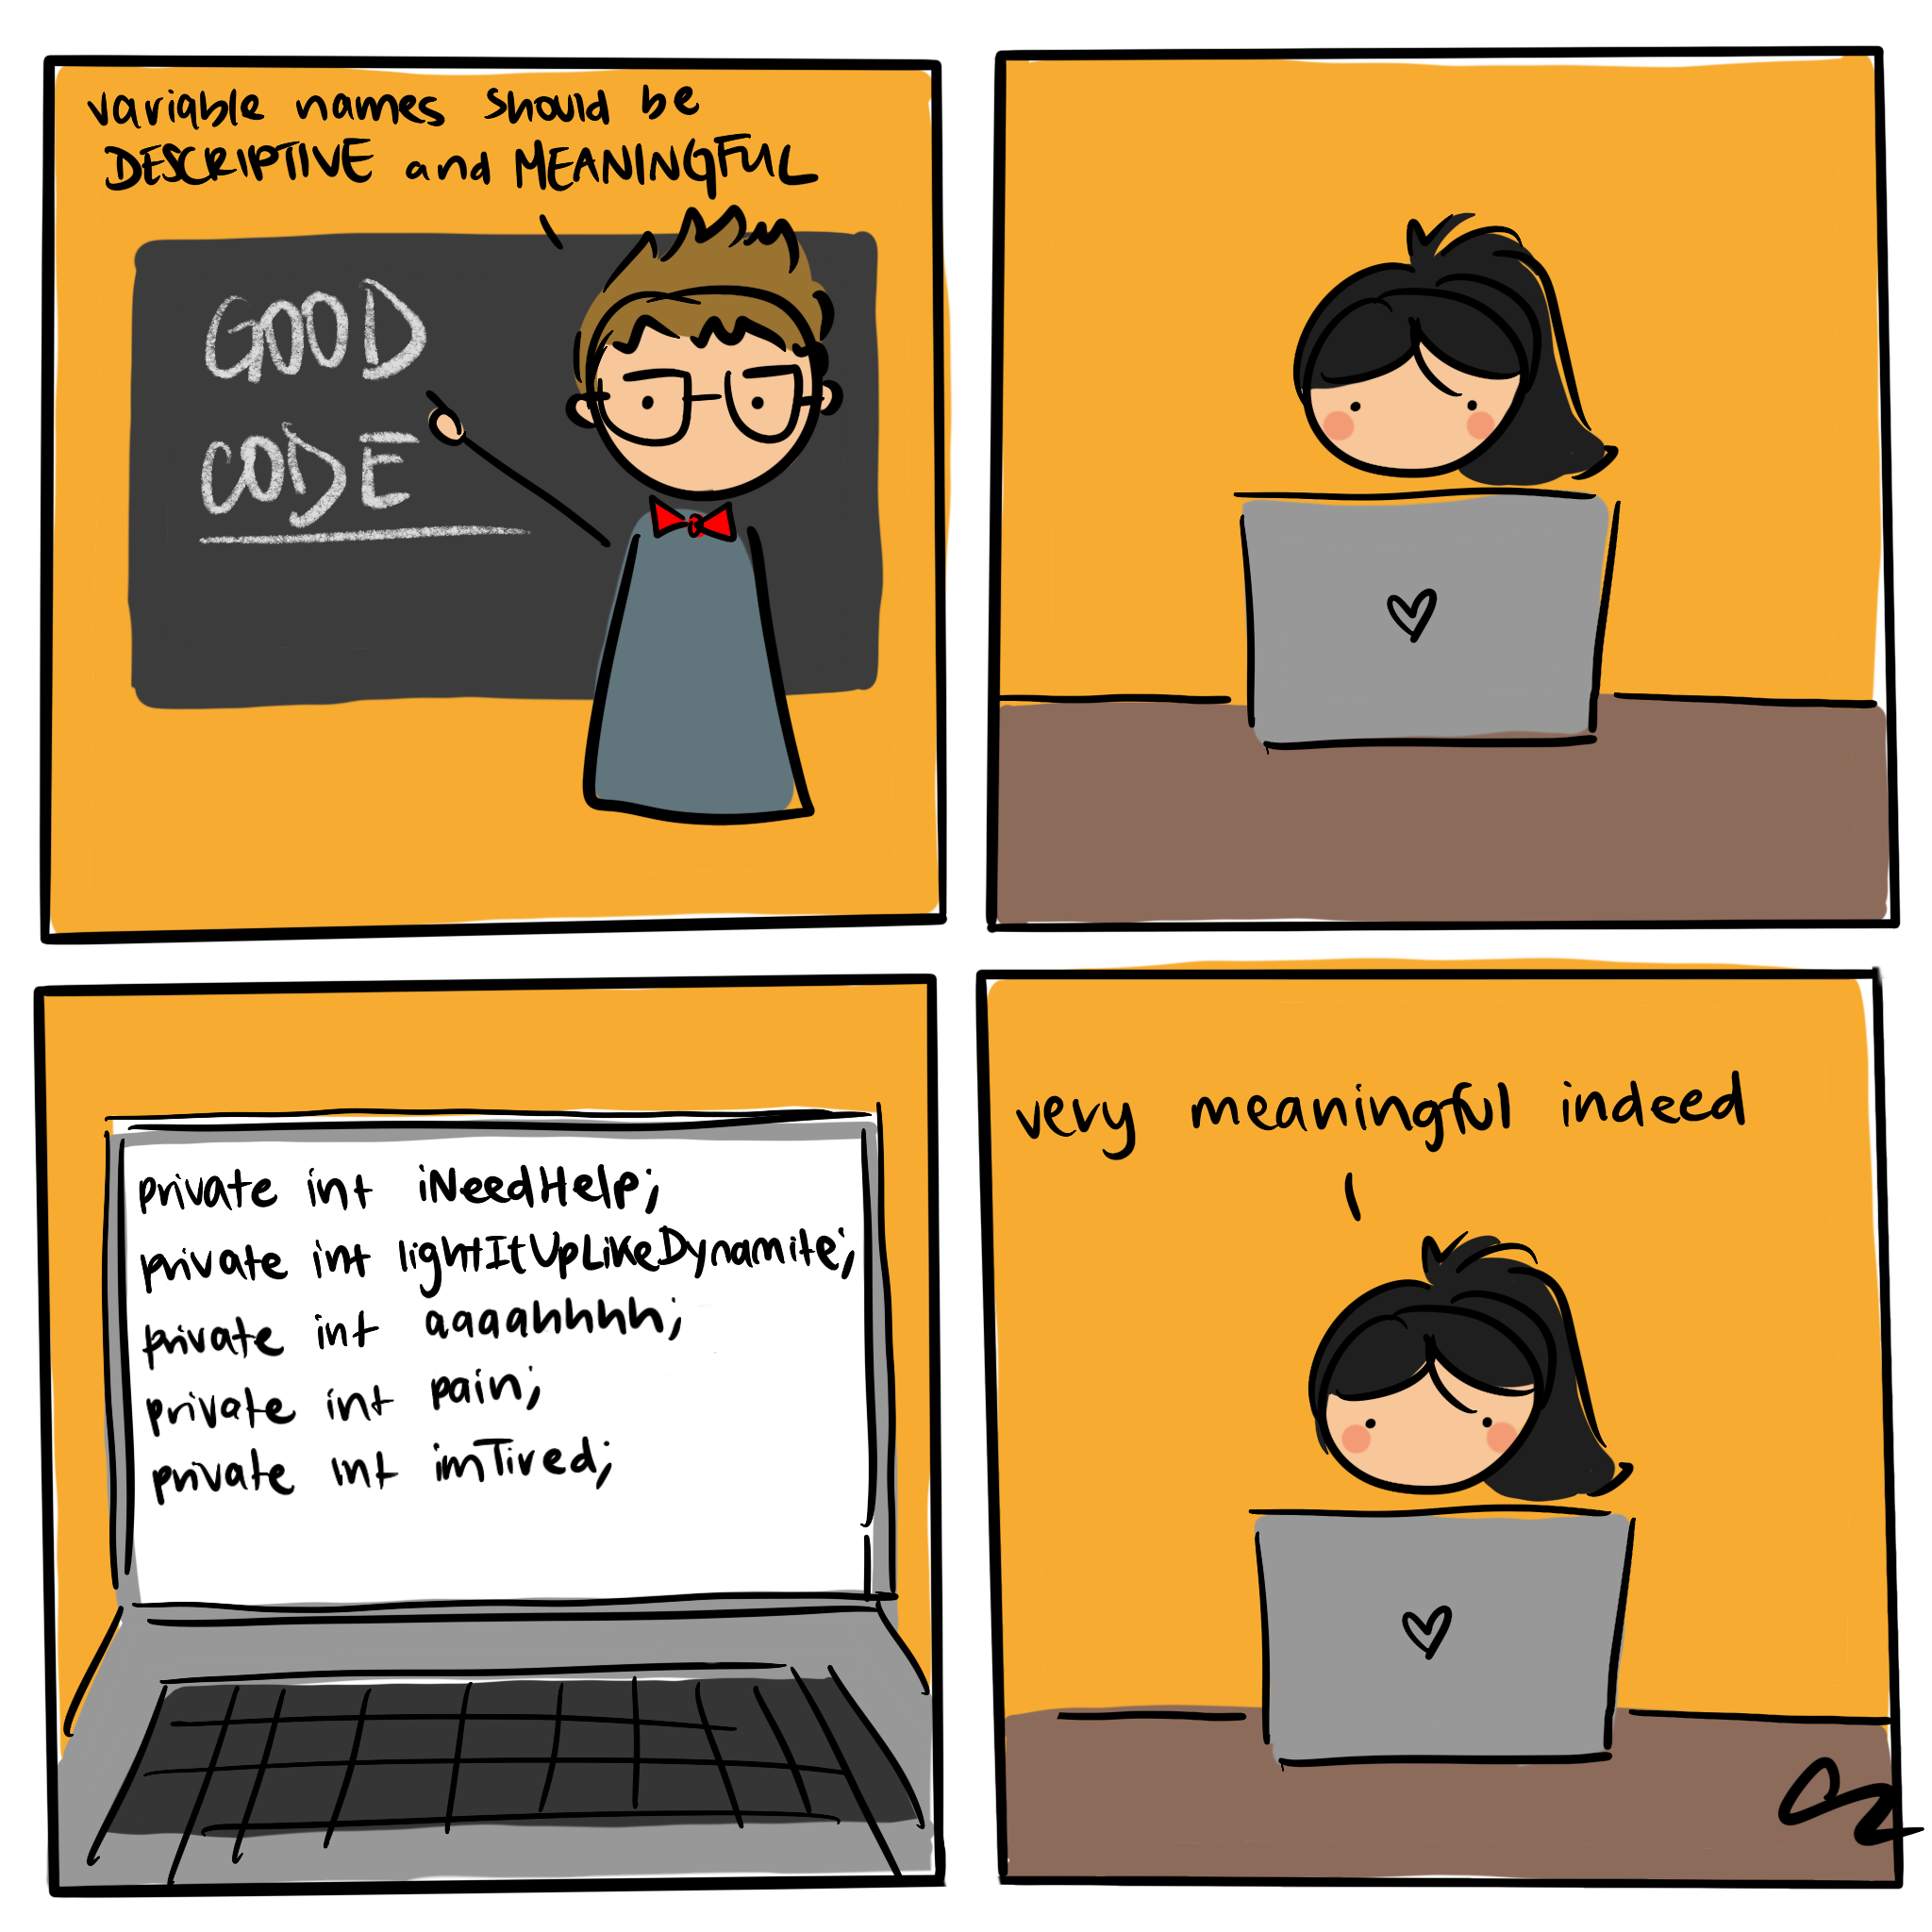 variable names should be
DESCRIPTIVE and MEANINGFUL
GOOD
CODE
private int iNeedHelp;
private int lightItUpLikeDynamite;
private int aaaahhhhh;
private int pain;
private int imTired;
very meaningful indeed